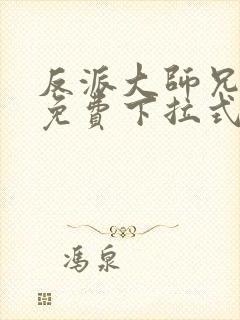 反派大師兄
免費下拉式
冯泉